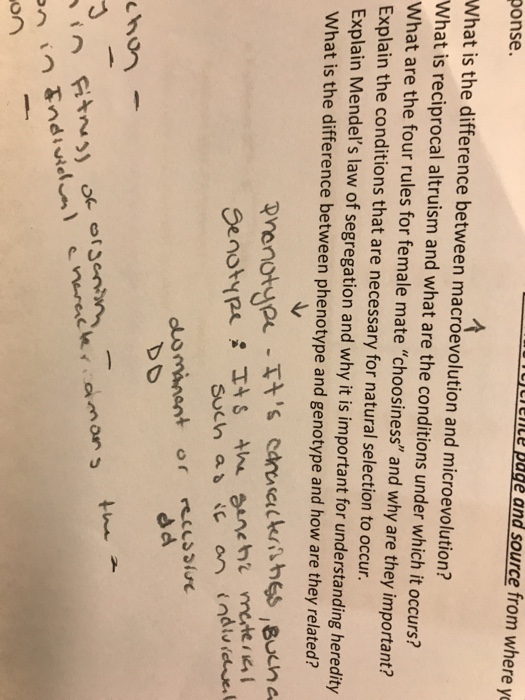 ponse.
page and source from where yo
What is the difference between macroevolution and microevolution?
What is reciprocal altruism and what are the conditions under which it occurs?
What are the four rules for female mate "choosiness" and why are they important?
Explain the conditions that are necessary for natural selection to occur.
Explain Mendel's law of segregation and why it is important for understanding heredity
What is the difference between phenotype and genotype and how are they related?
Phonotype - It's characteristics, such a
Genotype: Its the genetic material
such as is an individual
dominant or recessive
DD dd
in fitness of organism -
in Individual character